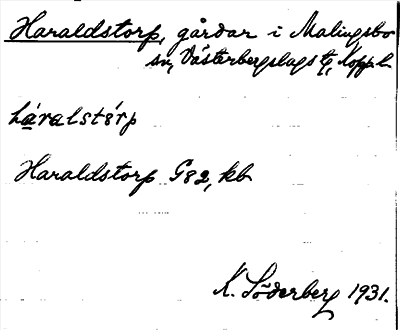 Haraldstorp, gårdar i Malingsbo
sn, Västerbergslags tg, Kopp. l.
håralstórp
Haraldstorp G82, kb
K. Söderberg 1931.